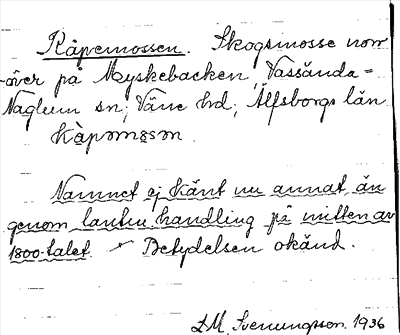 Kåpemossen. Skogsmosse norr
-över på Myskebacken, Vassända=
Naglum sn; Väne hd; Älfsborgs län
Namnet ej känt nu annat än
genom lantm. handling på mitten av
1800-talet. Betydelsen okänd.
D.M. Svenungsson. 1936